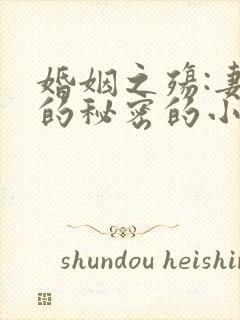 婚姻之殇:妻
的秘密的小
shundou heishin